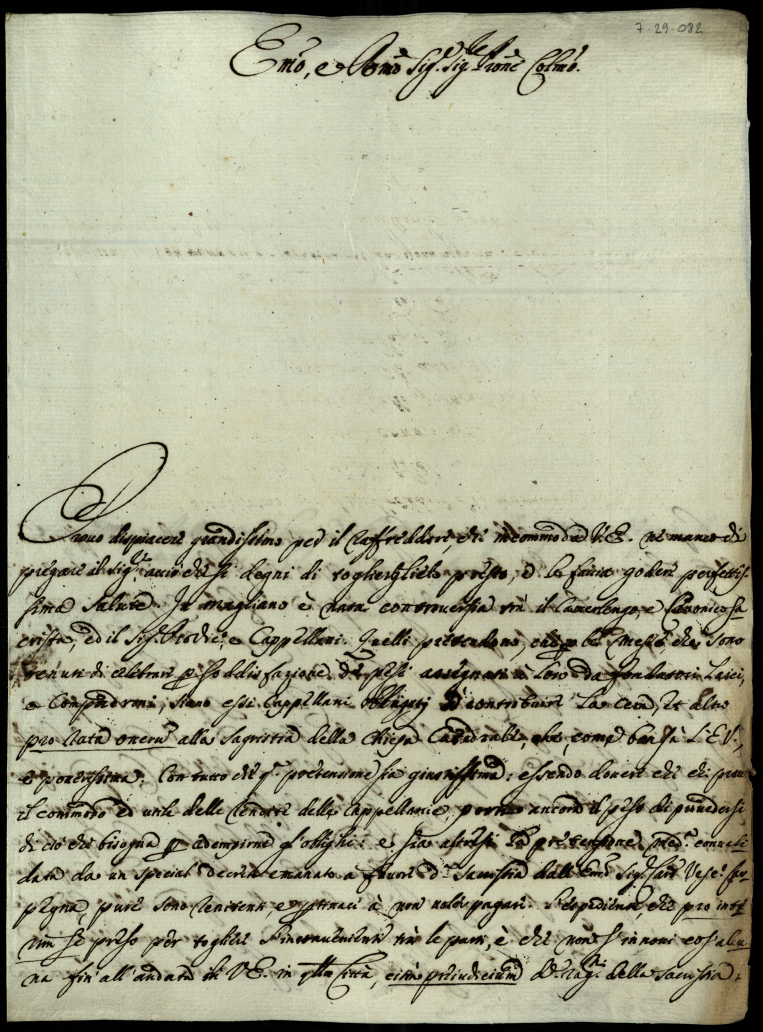 7-29-082
Emo, e Rmo Sig.r Sig.r Pron̄e Colmo.
Provo dispiacere grandissimo per il raffreddore, che incommoda V.E. ne manco di
pregare il Sig.re acciò che si degni di toglierglielo presto, e la faccia godere perfettis-
sima salute. In Magliano è nata controversia trà il Camerlengo, e Canonico Sa-
crista, ed il Sig.r e Cappellani. Quelli pretendono, che Messe, che sono
tenuti di celebrare soddisfazione de pesi assegnati à loro da Fondatori Laici,
e siano essi Cappellani obligati à contribuire La Cera, et altro
pro rata oneris alla Sagristia della Chiesa Catedrale, che, come ben sà L'E.V.,
è poverissima. Con tutto che q.a pretenzione sia giustissima: essendo dovere che chi
il commodo ed utile delle rendite delle Cappellanie, ancora il peso di provedersi
di ciò che bisogna adempirne gl'oblighi: e sia altresì la pretenzione med.a convali-
data da un special decreto emanato a favore d.a Sacristia dall'Emo Sig.r Card. Vesc.o Car-
pegna, pure sono renitenti, e ostinaci à non voler pagare. L'espediente, che pro inte-
rim si è preso per togliere l'inconveniente trà le parti, è che non s'innovi cosa alcu-
na fin'all'andata di V.E. in q.lla Città, citra preiudicium delle rag.ni della Sacristia.